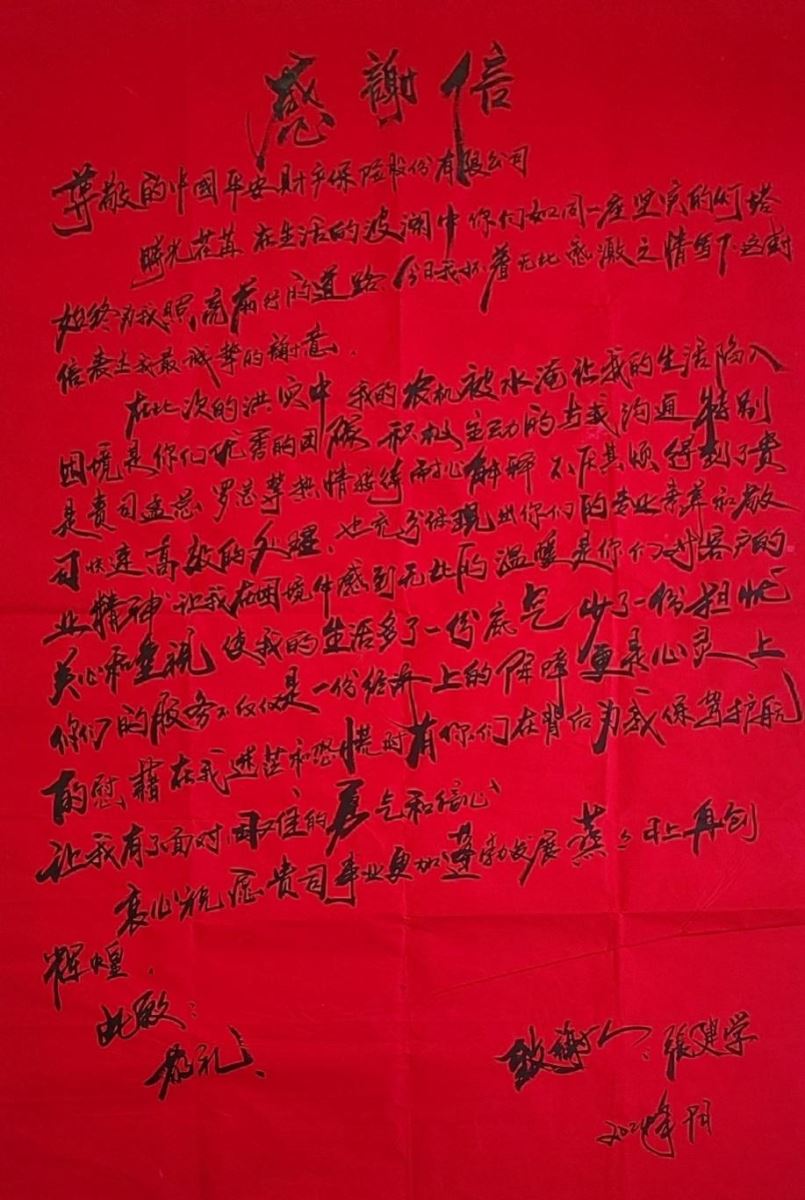 感謝信
尊敬的中國平安财产保险股份有限公司
時光荏苒 在生活的波澜中你们如同一座坚实的灯塔
始终为我照亮前行的道路、今日我怀着无比感激之情写下这封
信表达我最诚挚的謝意.
在此次的洪灾中 我的农机被水淹让我的生活陷入
困境是你们优秀的团队 积极主动的与我沟通 特别
是贵司孟总 罗总等热情接待耐心解释 不厌其烦得到了贵
司快速高效的处理、也充分体现出你们的专业素养和敬
业精神 让我在困境中感到无比的温暖是你们对客户的
关心和重視 使我的生活多了一份底气 少了一份担忧
你们的服务不仅仅是一份经济上的保障更是心灵上
的慰藉在我迷茫和恐慌时有你们在背后为我保驾护航
让我有了面对困难的勇气和信心
衷心祝愿贵司事业更加蓬勃发展蒸々日上再创
辉煌.
此致:
敬礼、
致謝人:張建学
2024年 月